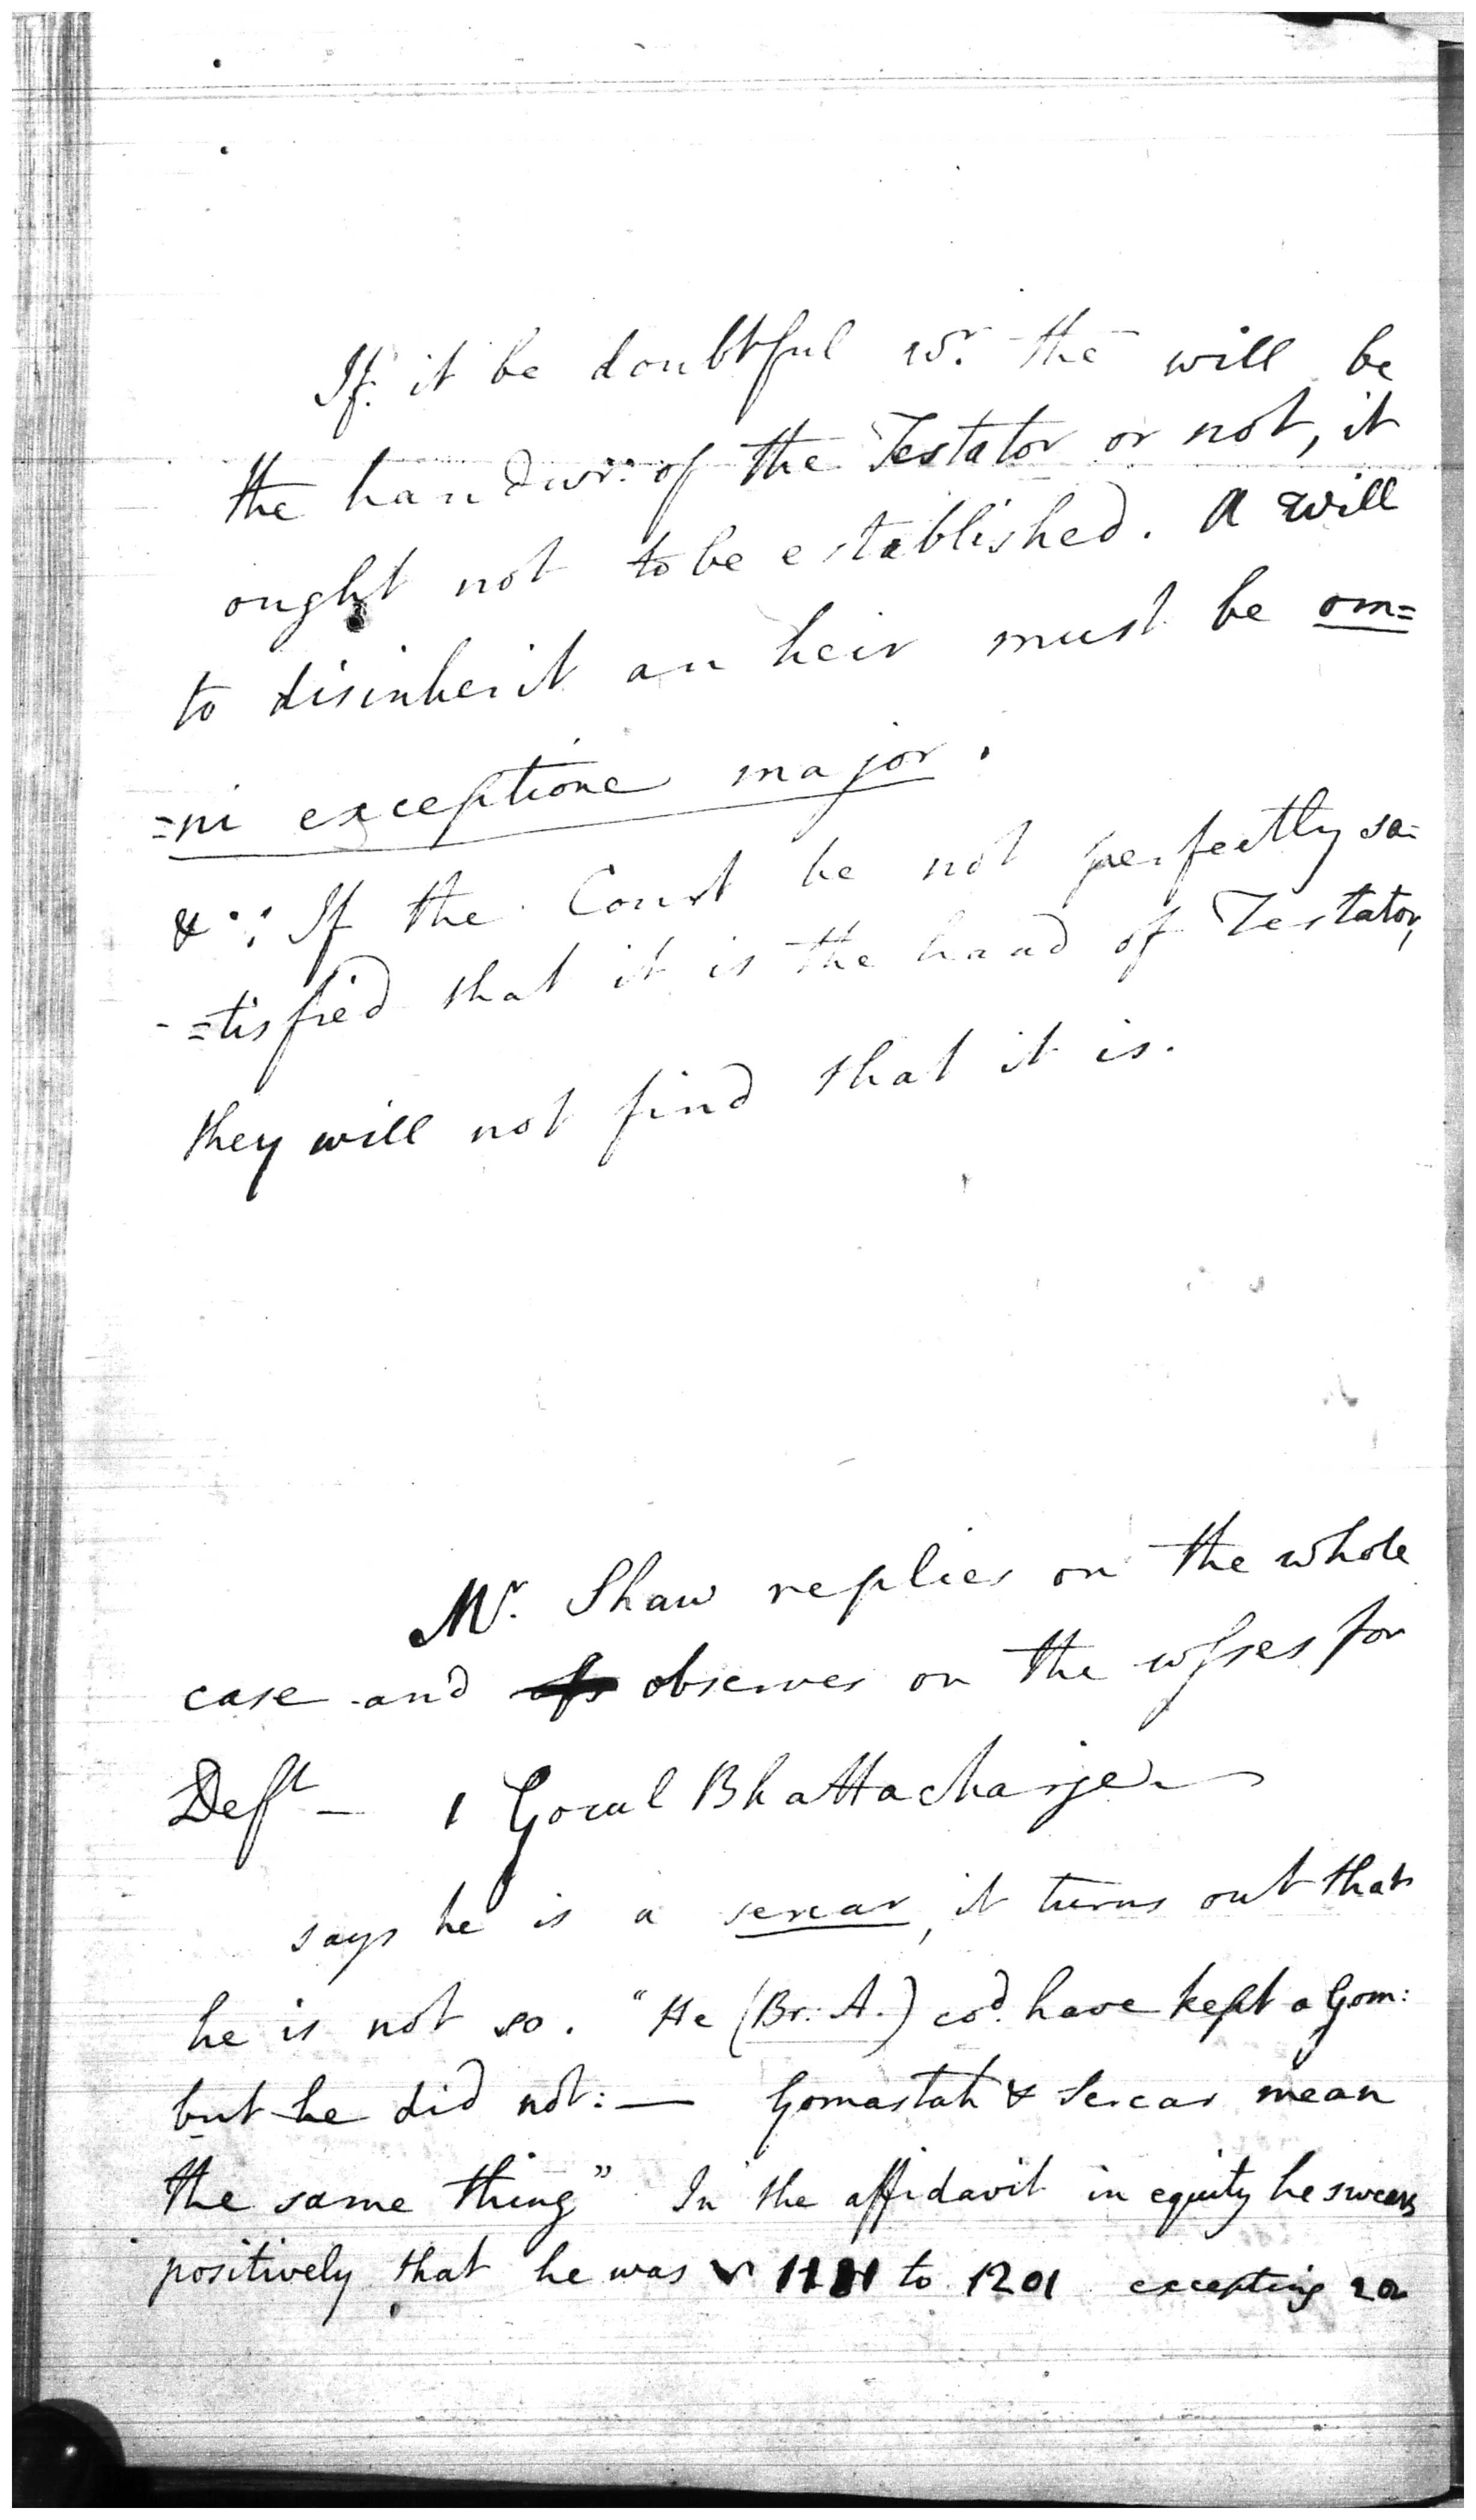 If it be doubtful wr. the will be
the handwr: of the Testator or not, it
ought not to be established. A will
to disinherit an heir must be om=
=ni exceptione major.
& ∵ If the Court be not perfectly sa=
=tisfied that it is the hand of Testator,
they will not find that it is.
Mr. Shaw replies on the whole
case and observes on the wsses for
Deft — 1 Gocul Bhattacharjee
says he is a sercar, it turns out that
he is not so. "He (Br: A.) cod. have kept a Gom:
but he did not: — Gomastah & Sercar mean
the same thing" In the affidavit in equity he swears
positively that he was to 1201 excepting